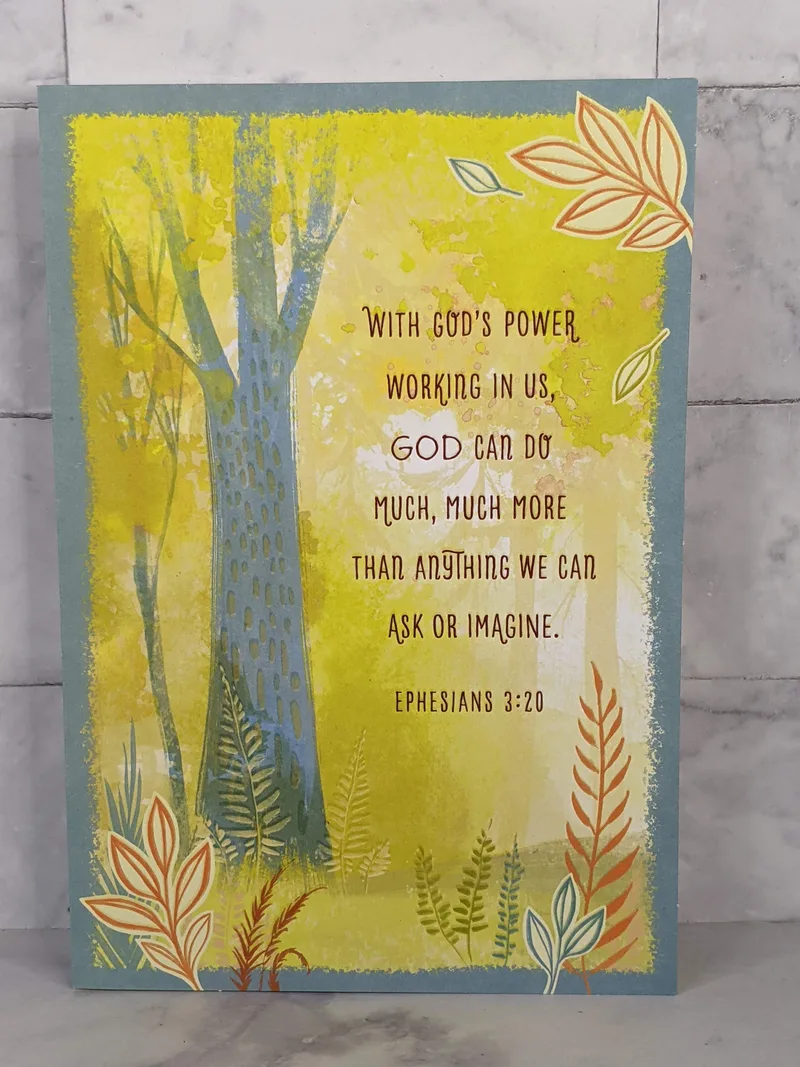 WITH GOD'S POWER
WORKING IN US,
GOD CAN DO
MUCH, MUCH MORE
THAN ANYTHING WE CAN
ASK OR IMAGINE.
EPHESIANS 3:20